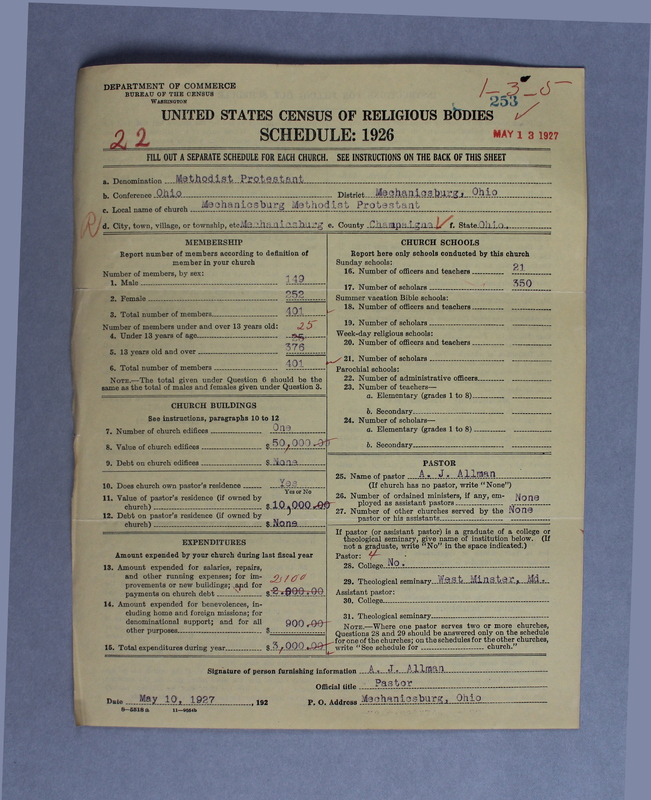 DEPARTMENT OF COMMERCE
BUREAU OF THE CENSUS
WASHINGTON
1-3-5
253
UNITED STATES CENSUS OF RELIGIOUS BODIES
22
SCHEDULE: 1926
MAY 13 1927
FILL OUT A SEPARATE SCHEDULE FOR EACH CHURCH. SEE INSTRUCTIONS ON THE BACK OF THIS SHEET
a. Denomination Methodist Protestant
b. Conference Ohio District Mechanicsburg, Ohio
c. Local name of church Mechanicsburg Methodist Protestant
d. City, town, village, or township, etc. Mechanicsburg e. County Champaign f. State Ohio.
MEMBERSHIP
Report number of members according to definition of
member in your church
Number of members, by sex:
1. Male 149
2. Female 252
3. Total number of members 401
Number of members under and over 13 years old: 25
4. Under 13 years of age 25
5. 13 years old and over 376
6. Total number of members 401
NOTE.—The total given under Question 6 should be the
same as the total of males and females given under Question 3.
CHURCH BUILDINGS
See instructions, paragraphs 10 to 12
7. Number of church edifices One
8. Value of church edifices $50,000.00
9. Debt on church edifices $ None
10. Does church own pastor's residence Yes
Yes or No
11. Value of pastor's residence (if owned by
church) $10,000.00
12. Debt on pastor's residence (if owned by
church) $ None
EXPENDITURES
Amount expended by your church during last fiscal year
13. Amount expended for salaries, repairs,
and other running expenses; for im-
provements or new buildings; and for
payments on church debt
2100
14. Amount expended for benevolences, in-
cluding home and foreign missions; for
denominational support; and for all
other purposes $ 900.00
15. Total expenditures during year $3,000.00
CHURCH SCHOOLS
Report here only schools conducted by this church
Sunday schools:
16. Number of officers and teachers 21
17. Number of scholars 350
Summer vacation Bible schools:
18. Number of officers and teachers
19. Number of scholars
Week-day religious schools:
20. Number of officers and teachers
21. Number of scholars
Parochial schools:
22. Number of administrative officers
23. Number of teachers—
a. Elementary (grades 1 to 8)
b. Secondary
24. Number of scholars—
a. Elementary (grades 1 to 8)
b. Secondary
PASTOR
25. Name of pastor A. J. Allman
(If church has no pastor, write "None")
26. Number of ordained ministers, if any, em-
ployed as assistant pastors None
27. Number of other churches served by the
pastor or his assistants None
If pastor (or assistant pastor) is a graduate of a college or
theological seminary, give name of institution below. (If
not a graduate, write "No" in the space indicated.)
Pastor: 4
28. College No.
29. Theological seminary West Minster, Md.
Assistant pastor:
30. College
31. Theological seminary
NOTE.—Where one pastor serves two or more churches,
Questions 28 and 29 should be answered only on the schedule
for one of the churches; on the schedules for the other churches,
write "See schedule for church."
Signature of person furnishing information A. J. Allman
Official title Pastor
Date May 10, 1927, 192 P. O. Address Mechanicsburg, Ohio